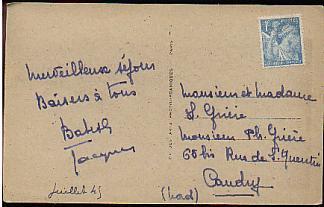 Merveilleux séjour
Baisers à tous
Jacques
Juillet 45
Monsieur et madame
S. Grière
Monsieur Ph. Grière
60 bis Rue de St Quentin
Caudry
(Nord)